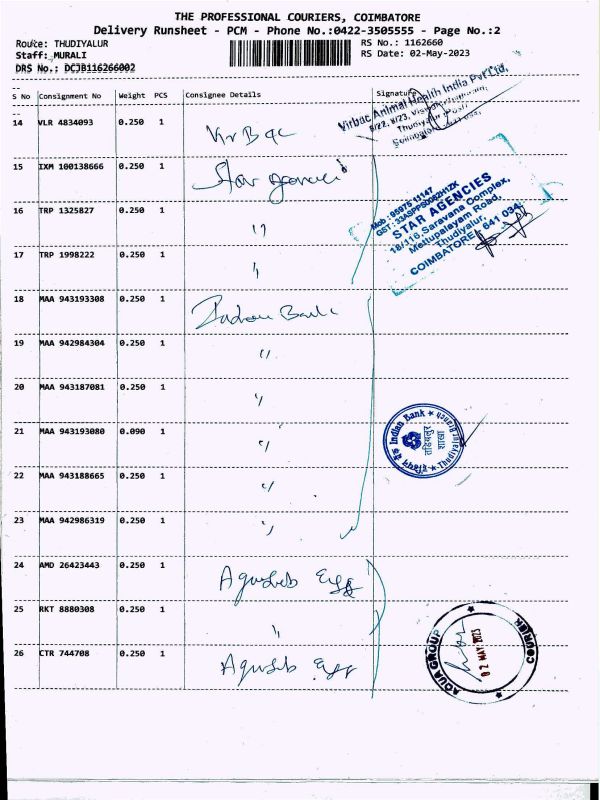 THE PROFESSIONAL COURIERS, COIMBATORE
Delivery Runsheet - PCM - Phone No.:0422-3505555 - Page No.:2
Route: THUDIYALUR
RS No.: 1162660
Staff: MURALI
RS Date: 02-May-2023
DRS No.: DCJB116266002
S No Consignment No Weight PCS Consignee Details Signature
14 VLR 4834093 0.250 1 Virbac
Virbac Animal Health India Pvt Ltd,
15 IXM 100138666 0.250 1 Star agencies
Mob: 95975 11147
STAR AGENCIES
18/116, Saravana Complex,
Mettupalayam Road,
Thudiyalur,
COIMBATORE - 641 034.
16 TRP 1325827 0.250 1 "
17 TRP 1998222 0.250 1 "
18 MAA 943193308 0.250 1 Indian Bank
19 MAA 942984304 0.250 1 "
20 MAA 943187081 0.250 1 "
21 MAA 943193080 0.090 1 "
Indian Bank ★ Thudiyalur Branch ★
शाखा
22 MAA 943188665 0.250 1 "
23 MAA 942986319 0.250 1 "
24 AMD 26423443 0.250 1
25 RKT 8880308 0.250 1 "
AQUA GROUP
02 MAY 2023
COURIER
26 CTR 744708 0.250 1